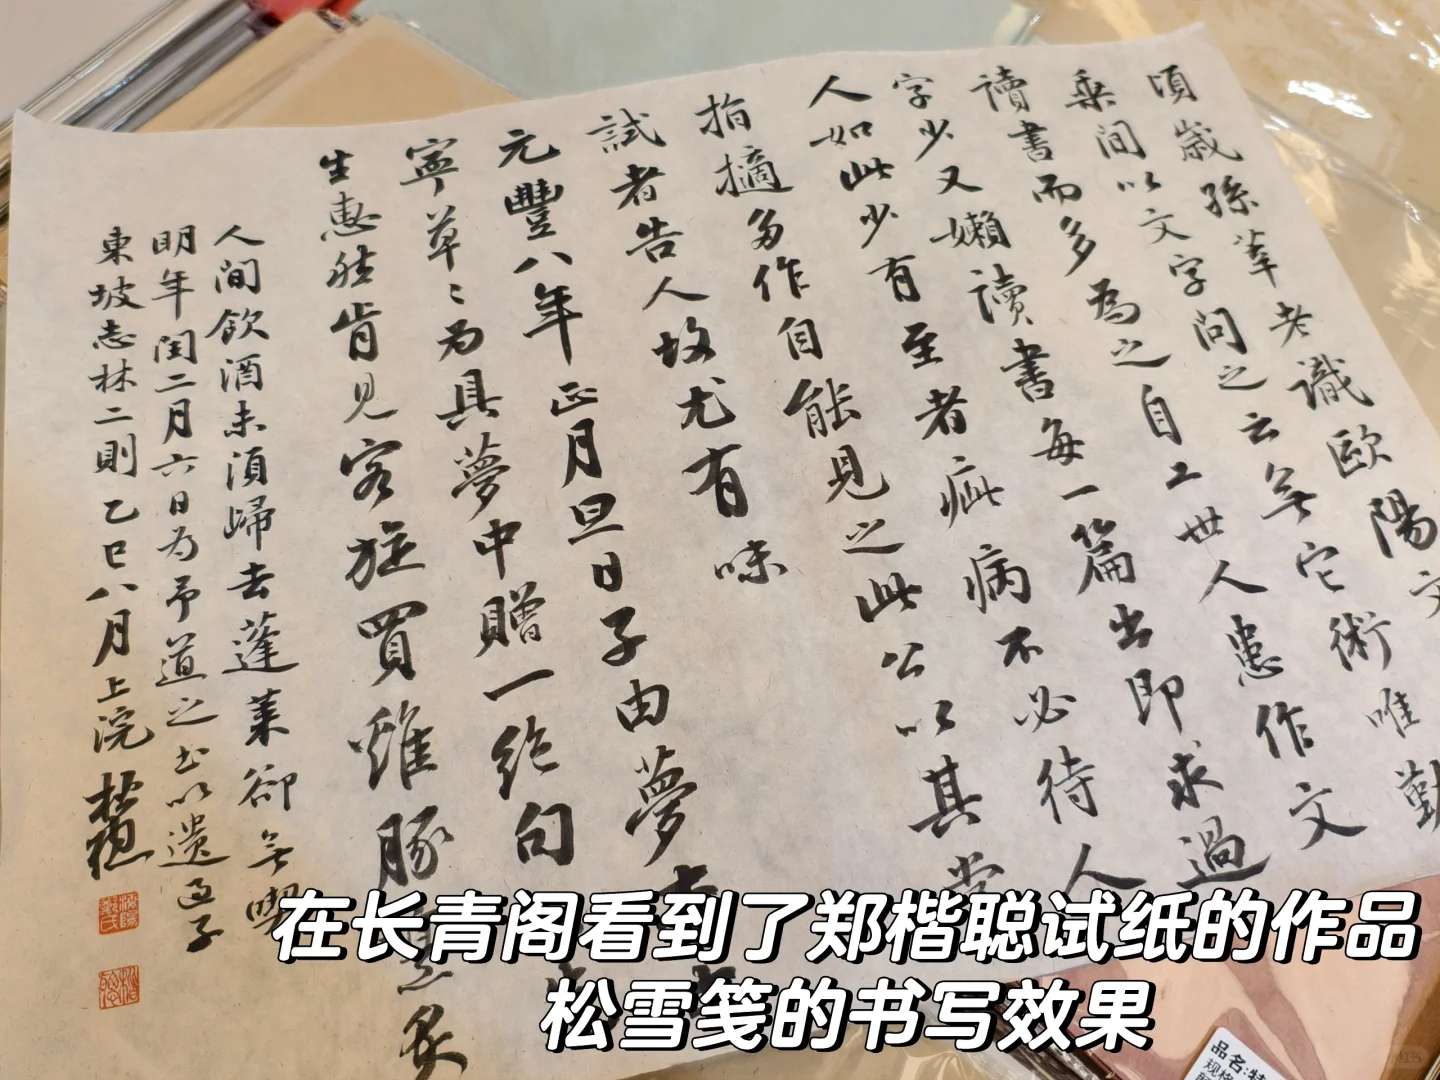 頃歲孫莘老識歐陽文
乘間以文字問之云無它術唯勤
讀書而多為之自工世人患作文
字少又嬾讀書每一篇出即求過
人如此少有至者疵病不必待人
指摘多作自能見之此公以其嘗
試者告人故尤有味
元豐八年正月旦日子由夢
寧草〻為具夢中贈一絕句
生惠然肯見客旋買雞豚炙
人間飲酒未須歸去蓬萊卻無喫
明年閏二月六日為予道之書以遺過子
東坡志林二則乙巳八月上浣楷聰
在长青阁看到了郑楷聪试纸的作品
松雪笺的书写效果
品名:特
规格